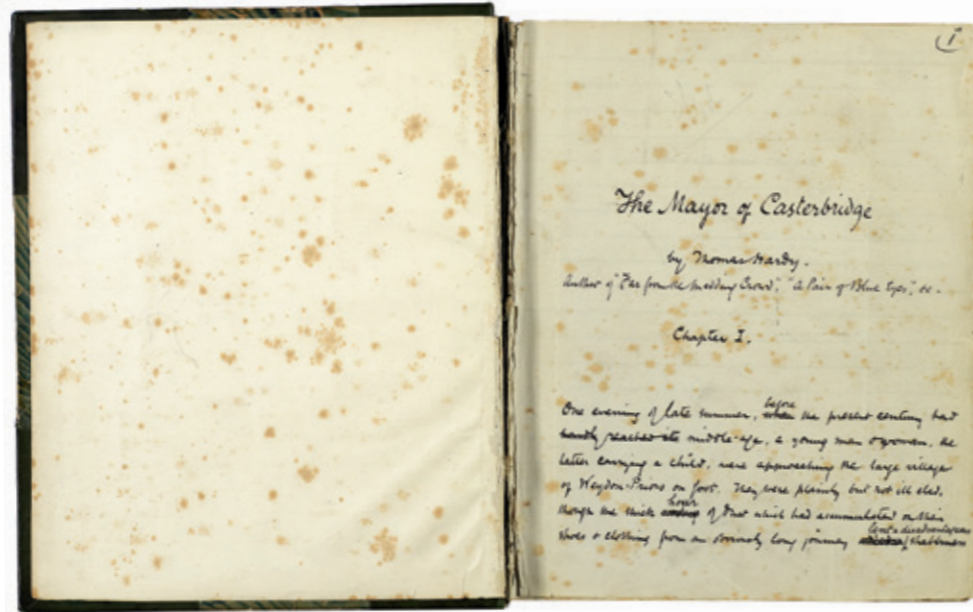 1
The Mayor of Casterbridge
by Thomas Hardy.
Author of "Far from the Madding Crowd", "A Pair of Blue Eyes", &c.
Chapter I.
before
One evening of late summer, when the present century had
hardly reached its middle-age, a young man & woman, the
latter carrying a child, were approaching the large village
of Weydon-Priors on foot. They were plainly but not ill clad,
hour
though the thick of dust which had accumulated on their
lent a disadvantageous
shoes & clothing from an obviously long journey shabbiness